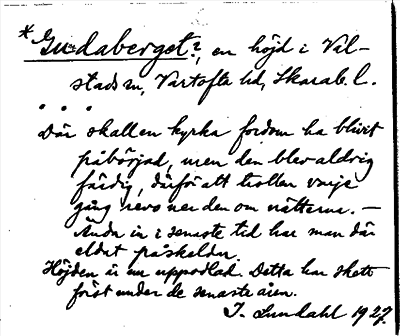 *Gudaberget?, en höjd i Vil-
stads sn, Vartofta hd, Skarab. l.
. . .
Där skall en kyrka fordom ha blivit
påbörjad, men den blev aldrig
färdig, därför att trollen varje
gång revo ner den om nätterna. —
Ända in i senaste tid har man där
eldat påskeldar.
Höjden är nu uppodlad. Detta har skett
först under de senaste åren.
I. Lundahl 1927.